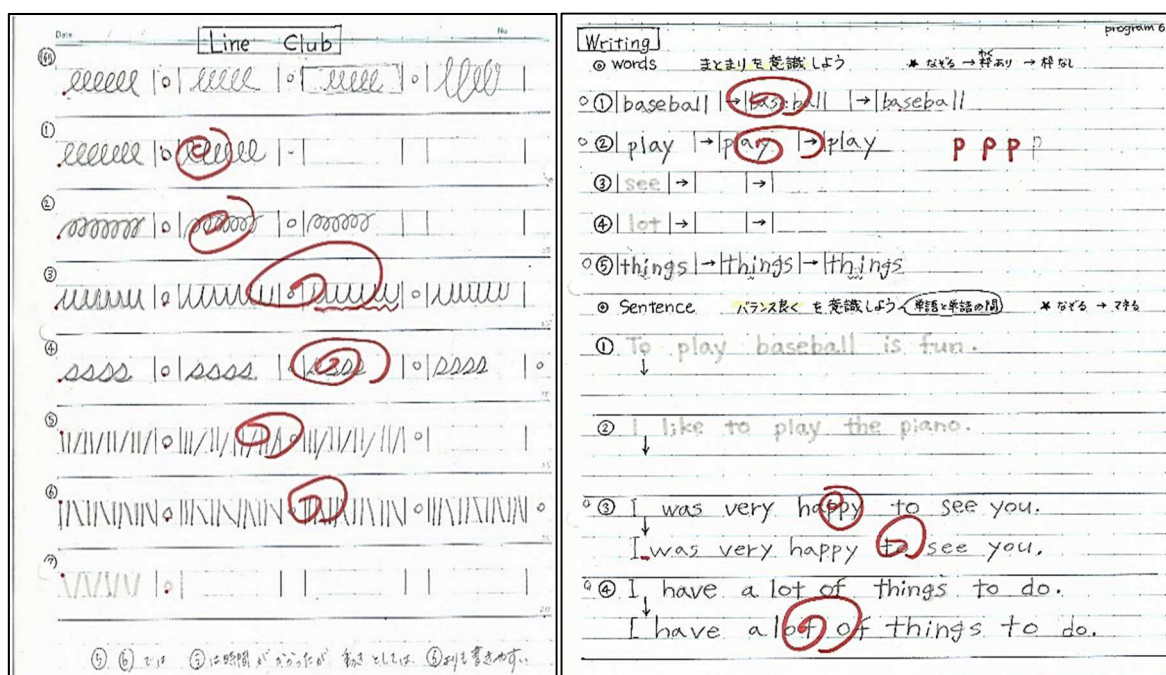 Date
No
Line Club
例
①
②
③
④
⑤
⑥
⑦
⑤ ⑥では ⑤は時間がかかったが 動きとしては、⑥よりも書きやすい
program 6
Writing
◎ words まとまりを意識しよう * なぞる → 枠あり → 枠なし
わく
① baseball → baseball → baseball
② play → play → play p p p p
③ see → →
④ lot → →
⑤ things → things → things
◎ Sentence バランス良くを意識しよう 単語と単語の間 * なぞる → マネる
① To play baseball is fun.
↓
② I like to play the piano.
↓
③ I was very happy to see you.
↓
I was very happy to see you.
④ I have a lot of things to do.
↓
I have a lot of things to do.